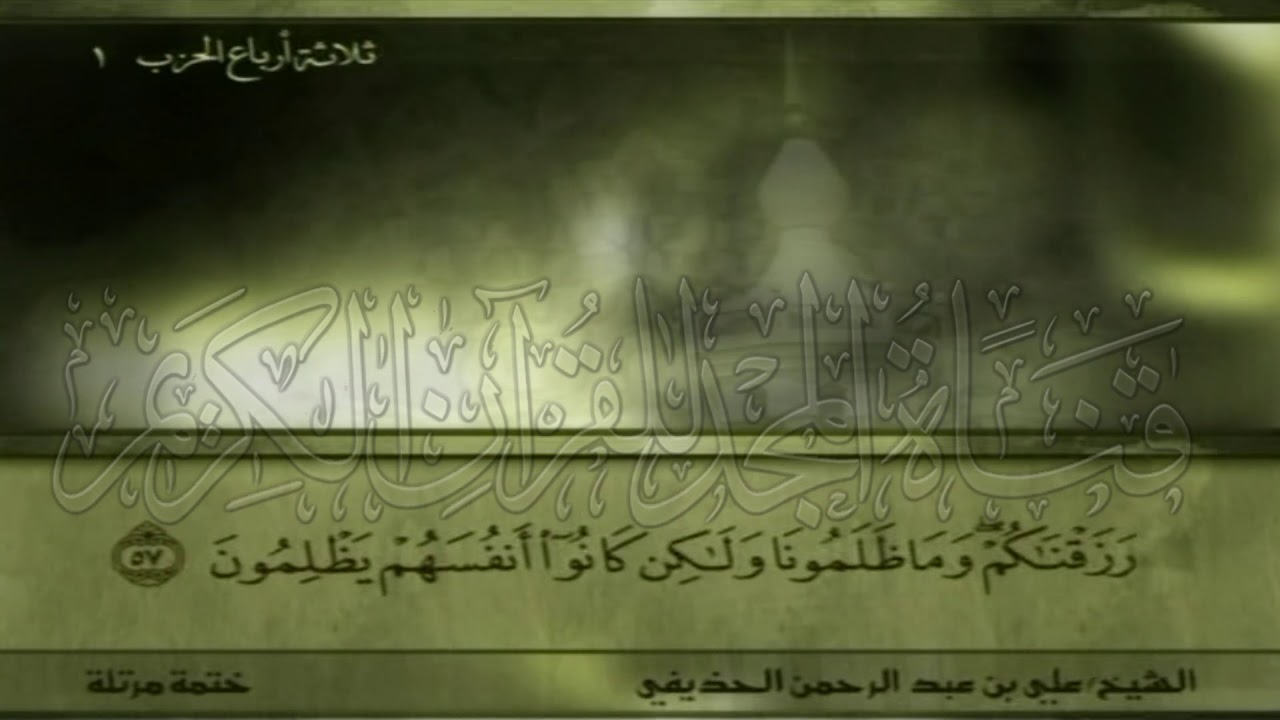 ثلاثة أرباع الحزب ١
قناة المجد للقرآن الكريم
رَزَقْنَٰكُمْۖ وَمَا ظَلَمُونَا وَلَٰكِن كَانُوٓا۟ أَنفُسَهُمْ يَظْلِمُونَ ٥٧
الشيخ/علي بن عبد الرحمن الحذيفي ختمة مرتلة